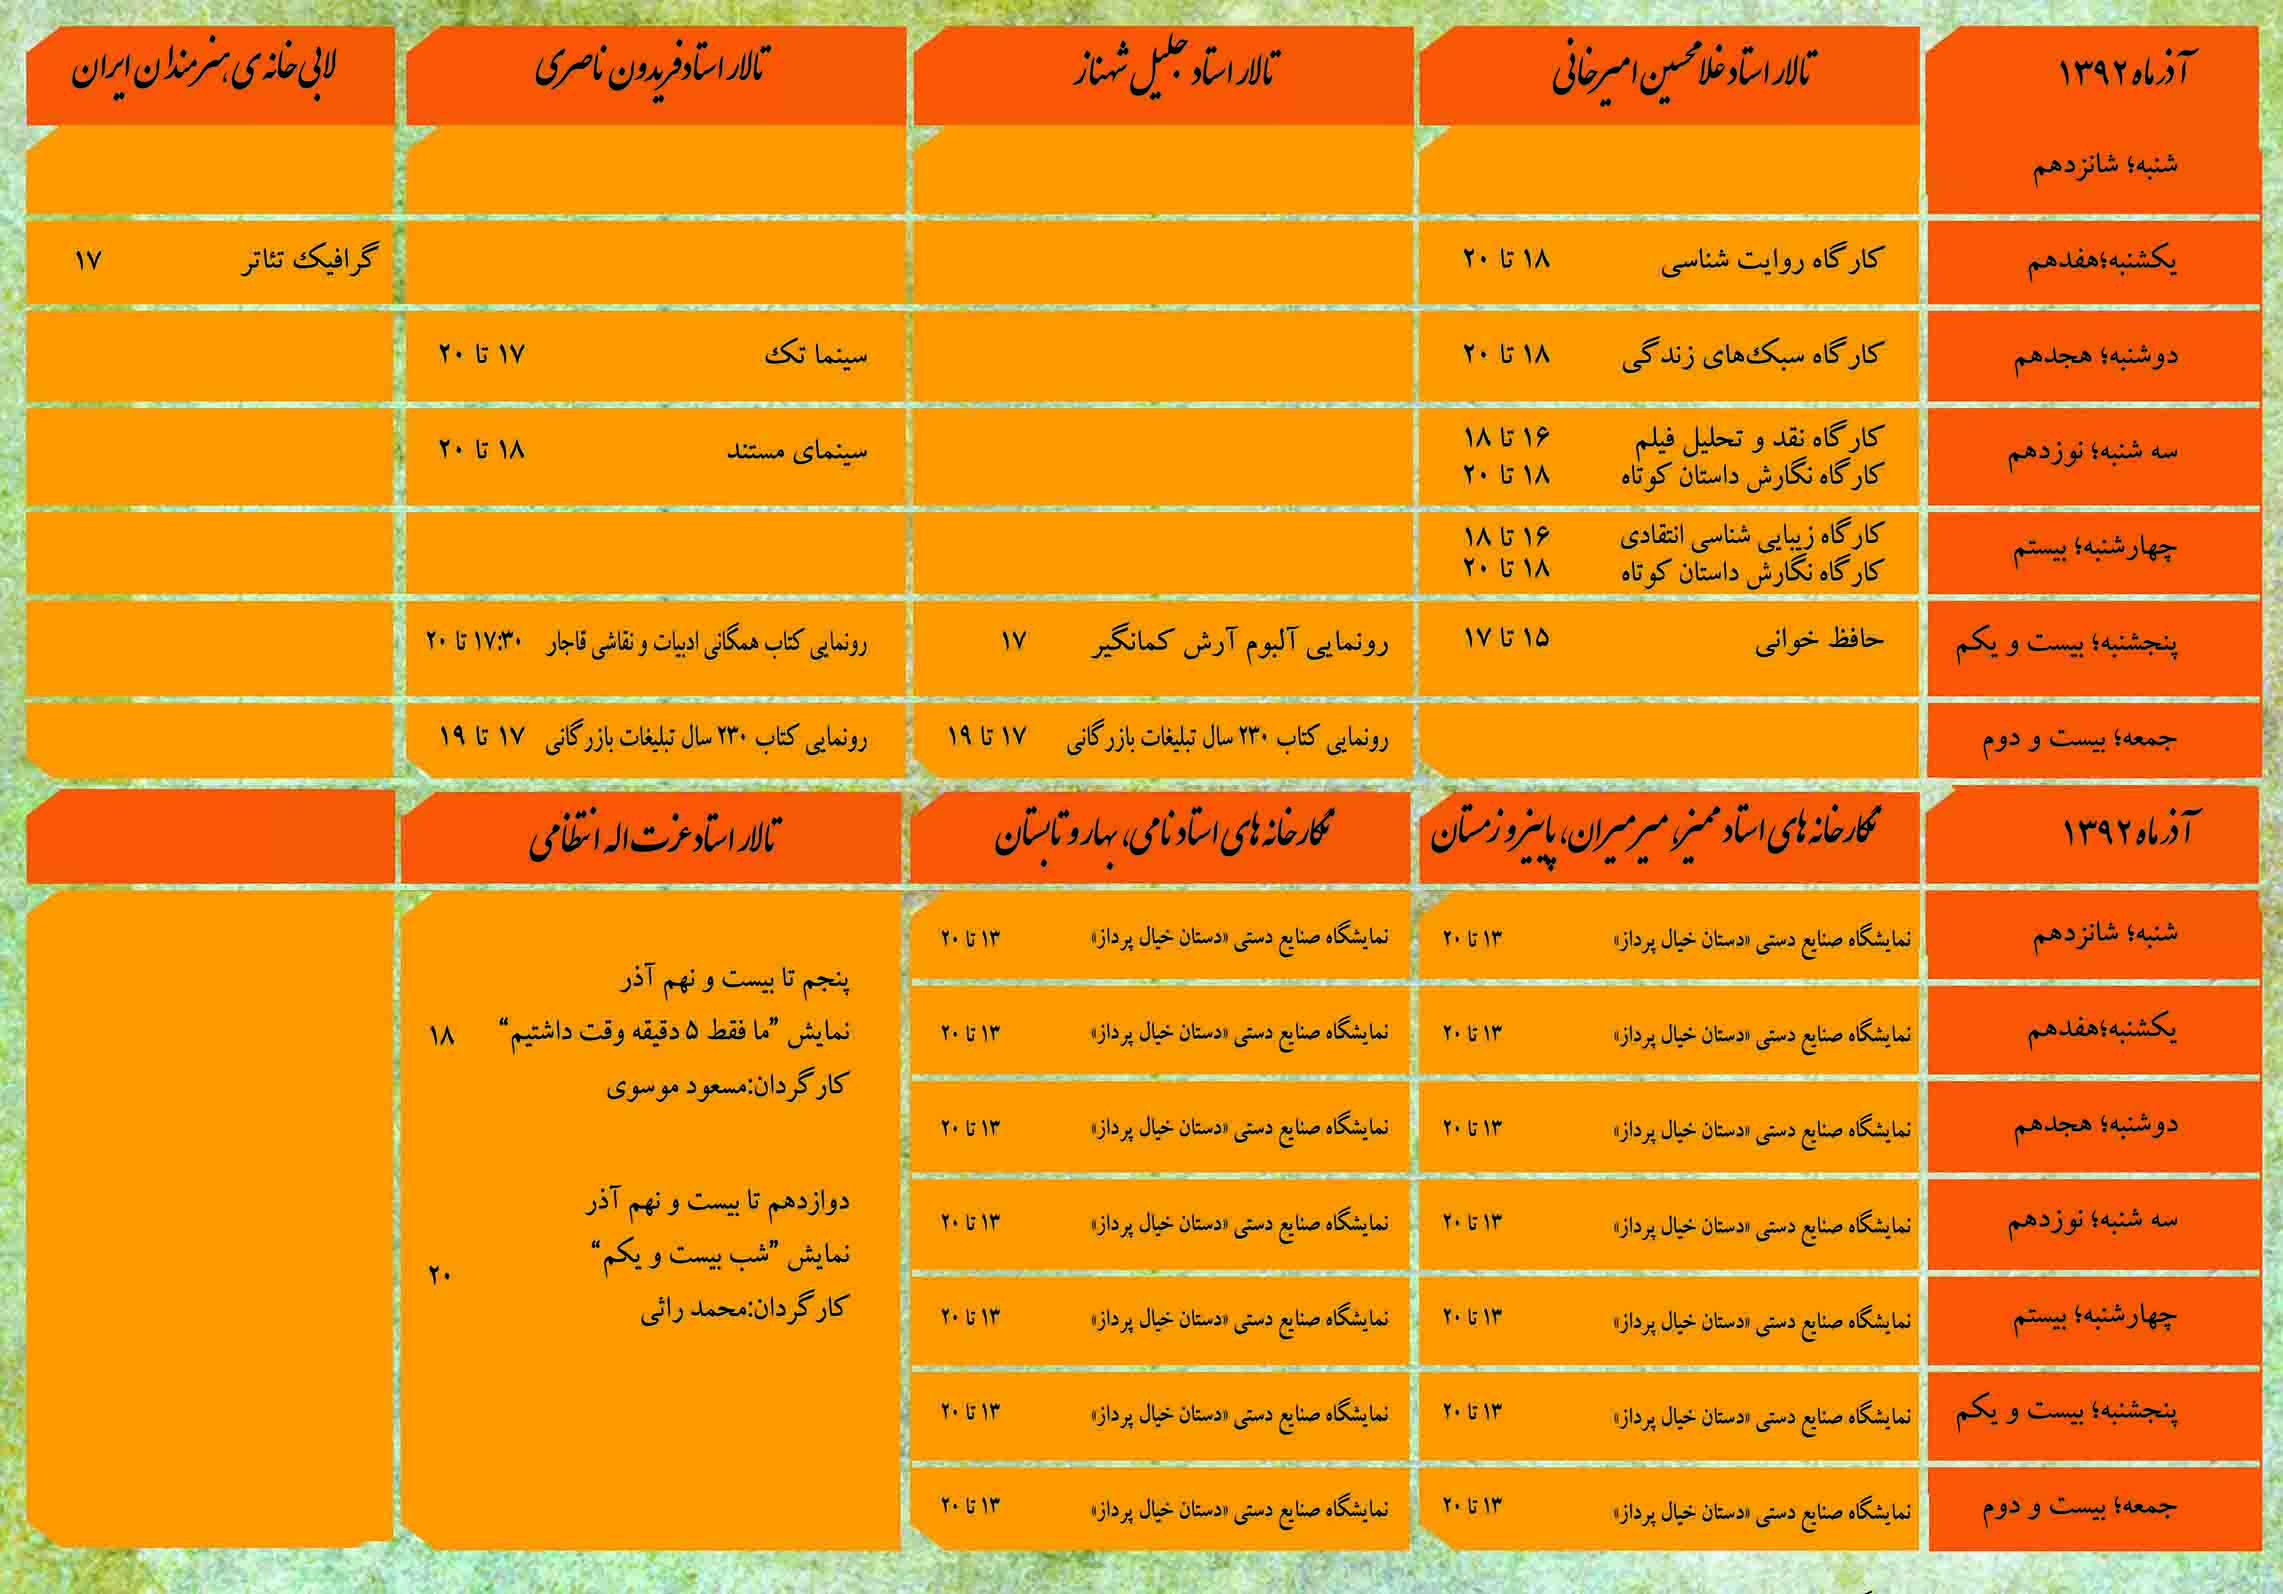 آذرماه ۱۳۹۲
تالار استاد غلامحسین امیرخانی
تالار استاد جلیل شهناز
تالار استاد فریدون ناصری
لابی خانه ی هنرمندان ایران
شنبه؛ شانزدهم
یکشنبه؛هفدهم
کارگاه روایت شناسی ۱۸ تا ۲۰
گرافیک تئاتر ۱۷
دوشنبه؛ هجدهم
کارگاه سبک‌های زندگی ۱۸ تا ۲۰
سینما تک ۱۷ تا ۲۰
سه شنبه؛ نوزدهم
کارگاه نقد و تحلیل فیلم ۱۶ تا ۱۸
کارگاه نگارش داستان کوتاه ۱۸ تا ۲۰
سینمای مستند ۱۸ تا ۲۰
چهارشنبه؛ بیستم
کارگاه زیبایی شناسی انتقادی ۱۶ تا ۱۸
کارگاه نگارش داستان کوتاه ۱۸ تا ۲۰
پنجشنبه؛ بیست و یکم
حافظ خوانی ۱۵ تا ۱۷
رونمایی آلبوم آرش کمانگیر ۱۷
رونمایی کتاب همگانی ادبیات و نقاشی قاجار ۱۷:۳۰ تا ۲۰
جمعه؛ بیست و دوم
رونمایی کتاب ۲۳۰ سال تبلیغات بازرگانی ۱۷ تا ۱۹
رونمایی کتاب ۲۳۰ سال تبلیغات بازرگانی ۱۷ تا ۱۹
آذرماه ۱۳۹۲
نگارخانه های استاد ممیز، میرمیران، پاییز و زمستان
نگارخانه های استاد نامی، بهار و تابستان
تالار استاد عزت اله انتظامی
شنبه؛ شانزدهم
نمایشگاه صنایع دستی «دستان خیال پرداز» ۱۳ تا ۲۰
نمایشگاه صنایع دستی «دستان خیال پرداز» ۱۳ تا ۲۰
یکشنبه؛هفدهم
نمایشگاه صنایع دستی «دستان خیال پرداز» ۱۳ تا ۲۰
نمایشگاه صنایع دستی «دستان خیال پرداز» ۱۳ تا ۲۰
دوشنبه؛ هجدهم
نمایشگاه صنایع دستی «دستان خیال پرداز» ۱۳ تا ۲۰
نمایشگاه صنایع دستی «دستان خیال پرداز» ۱۳ تا ۲۰
سه شنبه؛ نوزدهم
نمایشگاه صنایع دستی «دستان خیال پرداز» ۱۳ تا ۲۰
نمایشگاه صنایع دستی «دستان خیال پرداز» ۱۳ تا ۲۰
چهارشنبه؛ بیستم
نمایشگاه صنایع دستی «دستان خیال پرداز» ۱۳ تا ۲۰
نمایشگاه صنایع دستی «دستان خیال پرداز» ۱۳ تا ۲۰
پنجشنبه؛ بیست و یکم
نمایشگاه صنایع دستی «دستان خیال پرداز» ۱۳ تا ۲۰
نمایشگاه صنایع دستی «دستان خیال پرداز» ۱۳ تا ۲۰
جمعه؛ بیست و دوم
نمایشگاه صنایع دستی «دستان خیال پرداز» ۱۳ تا ۲۰
نمایشگاه صنایع دستی «دستان خیال پرداز» ۱۳ تا ۲۰
پنجم تا بیست و نهم آذر
نمایش ”ما فقط ۵ دقیقه وقت داشتیم“ ۱۸
کارگردان:مسعود موسوی
دوازدهم تا بیست و نهم آذر
نمایش ”شب بیست و یکم“ ۲۰
کارگردان:محمد راثی